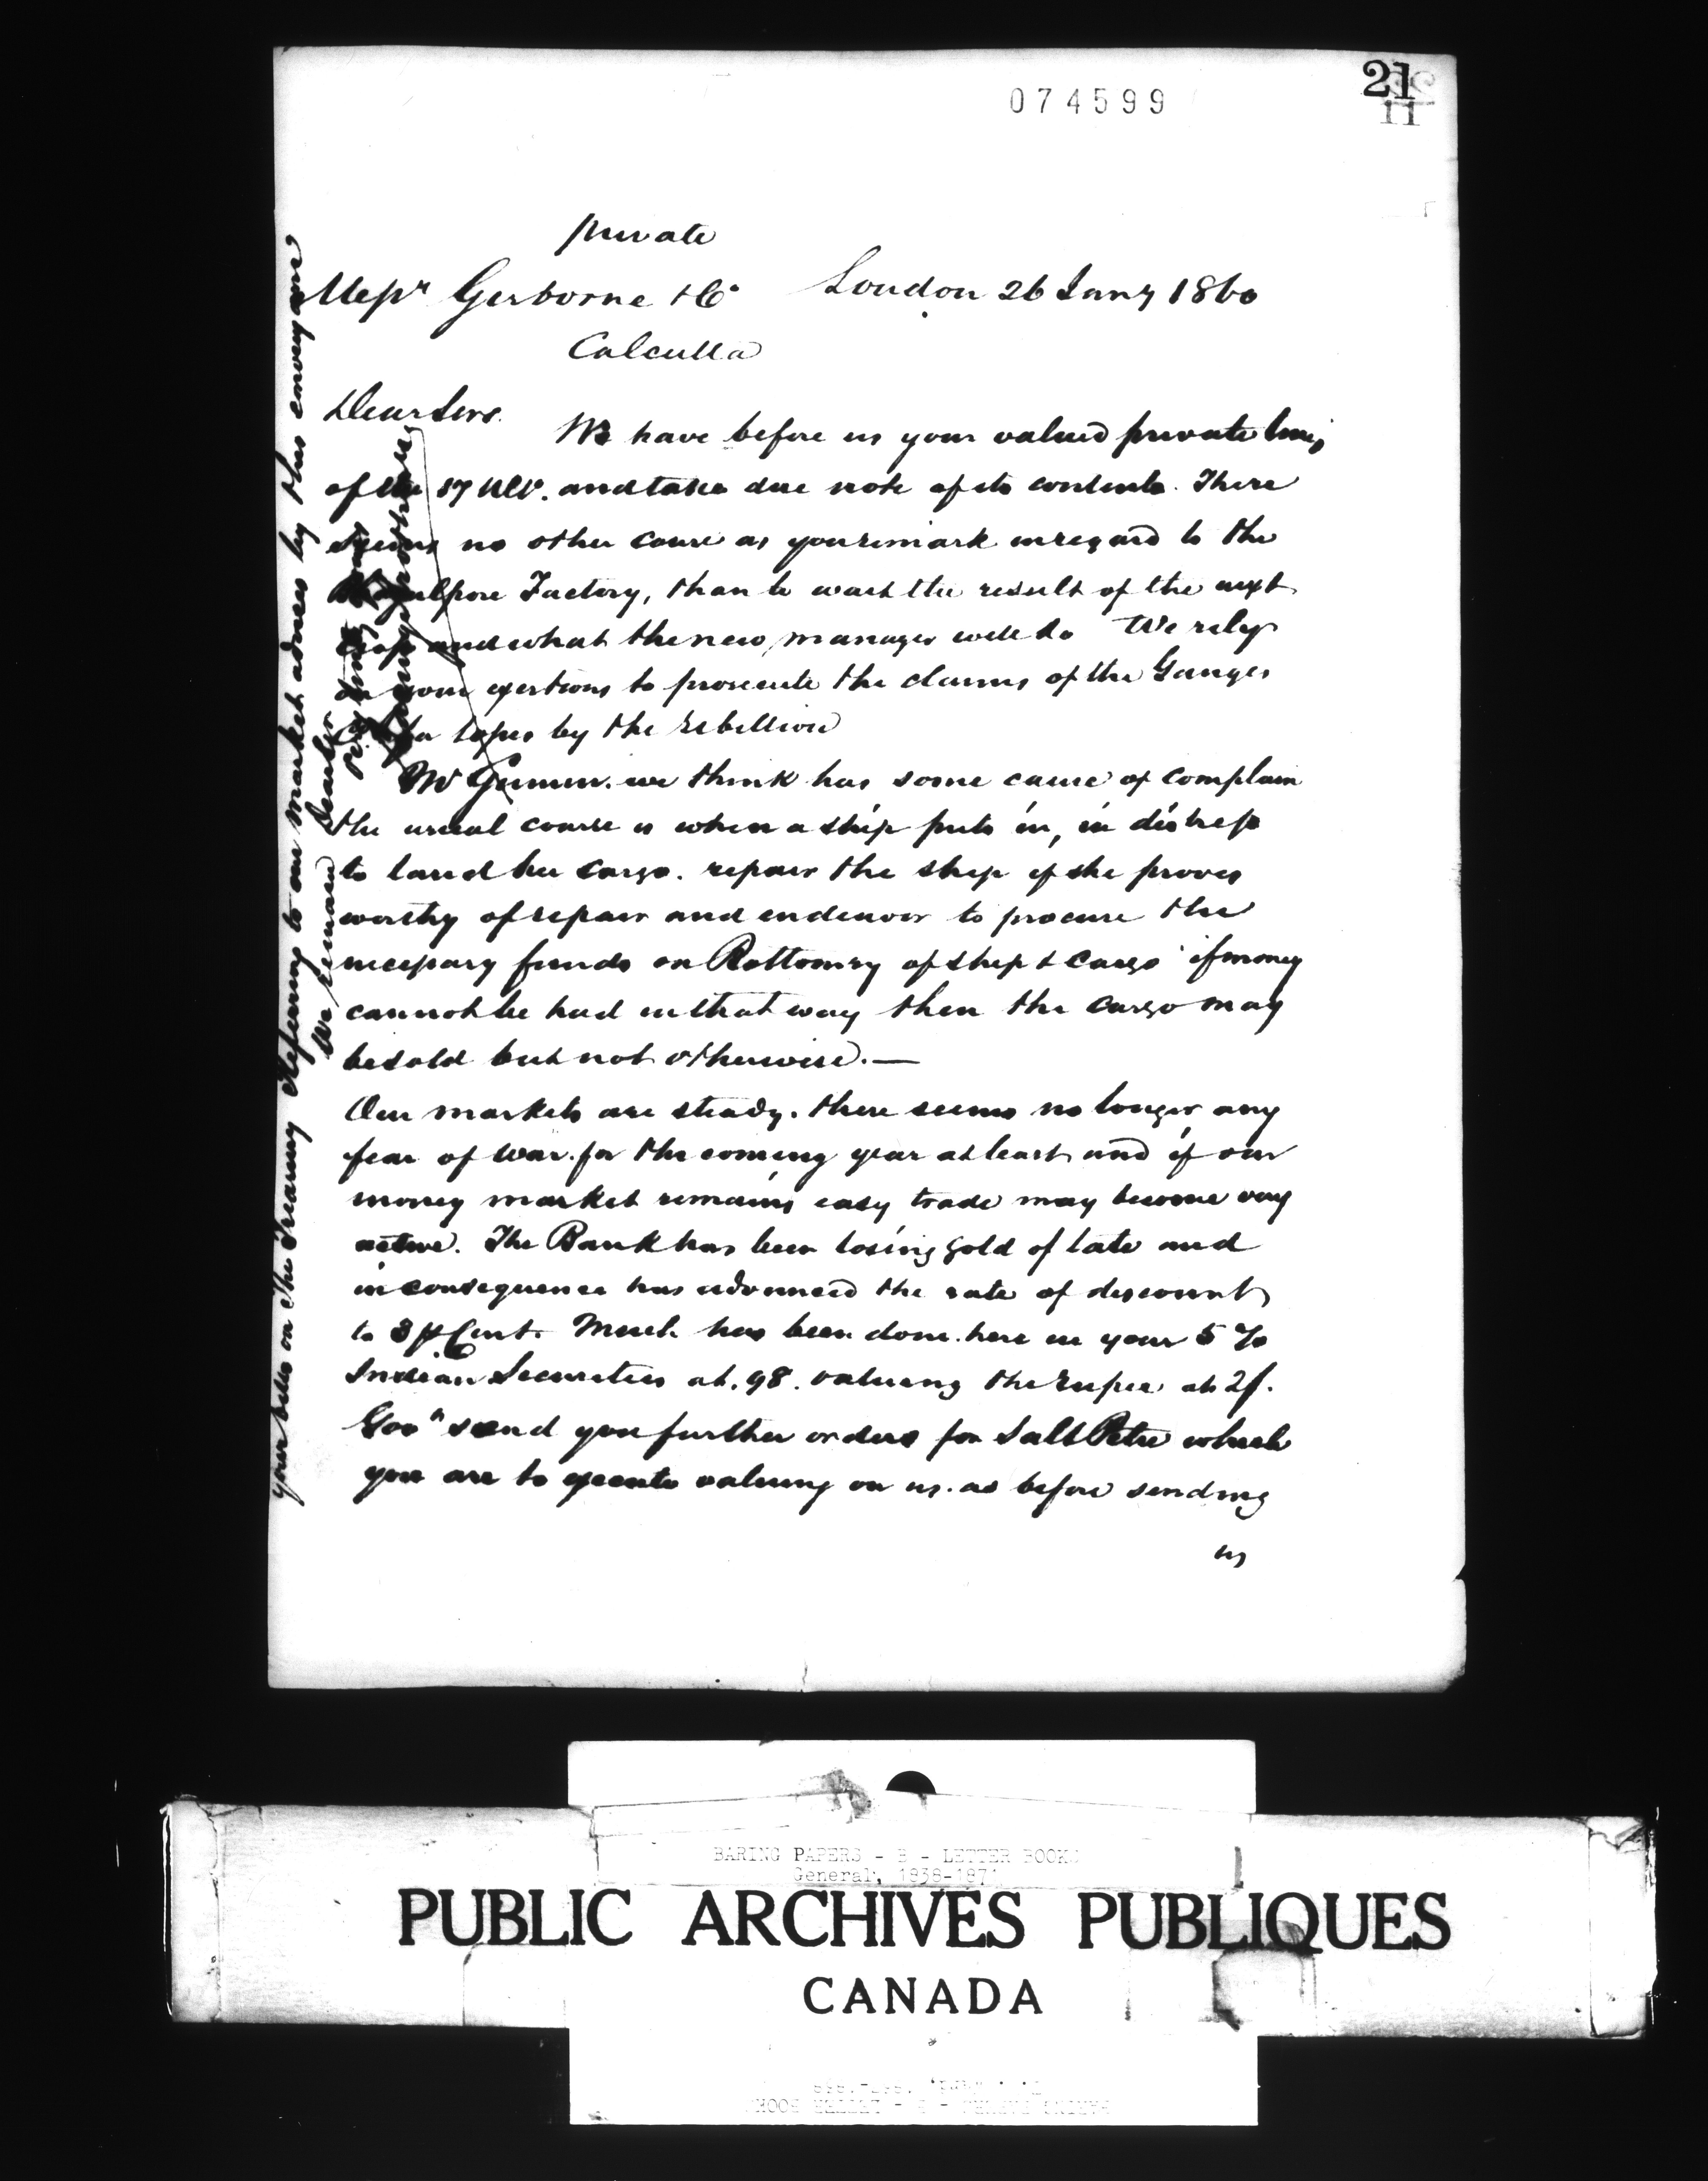 21
074599
private
Messrs Gisborne & Co London 26 Jany 1860
Calcutta
Dear Sirs
We have before us your valued private lines
of the 17 Ult. and take due note of its contents. There
seems no other course as you remark in regard to the
Factory, than to wait the result of the next
crop and what the new manager will do We rely
on your exertions to prosecute the claims of the Ganges
losses by the rebellion
Mr we think has some cause of complain
the usual course is when a ship puts in, in distress
to land her cargo. repair the ship if she proves
worthy of repair and endeavor to procure the
necessary funds on Bottomry of ship & cargo if money
cannot be had in that way then the cargo may
be sold but not otherwise.—
Our markets are steady. there seems no longer any
fear of war for the coming year at least and if our
money market remains easy trade may become very
active. The Bank has been losing gold of late and
in consequence has advanced the rate of discount
to 3 p Cent. Much has been done here in your 5 %
Indian Securities at 98. valuing the rupee at 2/.
send you further orders for Salt Petre which
you are to execute valuing on us. as before sending
us
your bills on the Treasury Referring to our market advices by this conveyance
We remain Dear Sirs
BARING PAPERS - B - LETTER BOOKS
General; 1838-1871
PUBLIC ARCHIVES PUBLIQUES
CANADA